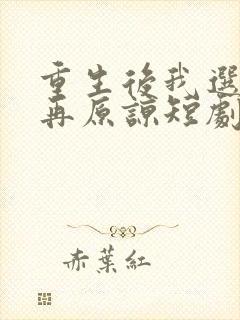 重生後我選
再原諒短劇
赤葉紅